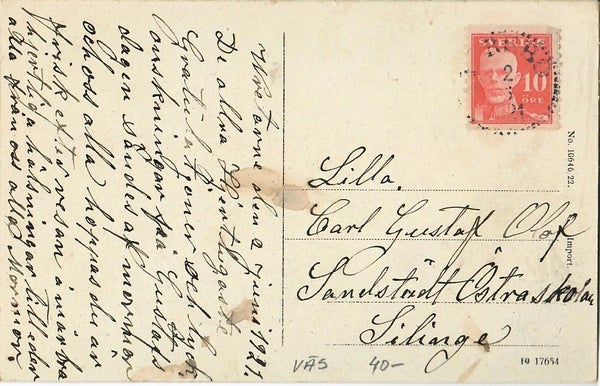 Wretorne den 2 juni 1921.
De allra Hjertligaste
Gratulationer och lyck
önskningar på Gustafs
dagen sändes af mormor
och oss alla hoppas du är
frisk
hjertliga hälsningar till eder
alla från oss alla Mormor.
SVERIGE
10
ÖRE
2
Lilla.
Carl Gustaf Olof
Sandstödt Östraskolan
Silinge
No. 10646/22.
Import.
19 17654
VÄS 40-